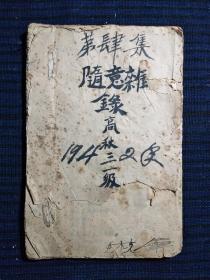 第肆集
隨意雜
錄
高秋三級
194